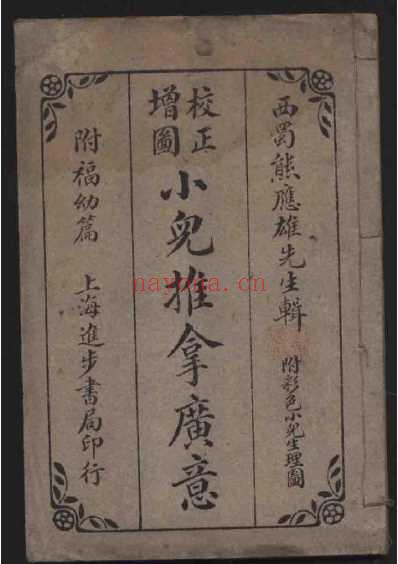 西蜀熊應雄先生輯
附彩色小兒生理圖
校正
增圖
小兒推拿廣意
附福幼篇
上海進步書局印行
nayona.cn